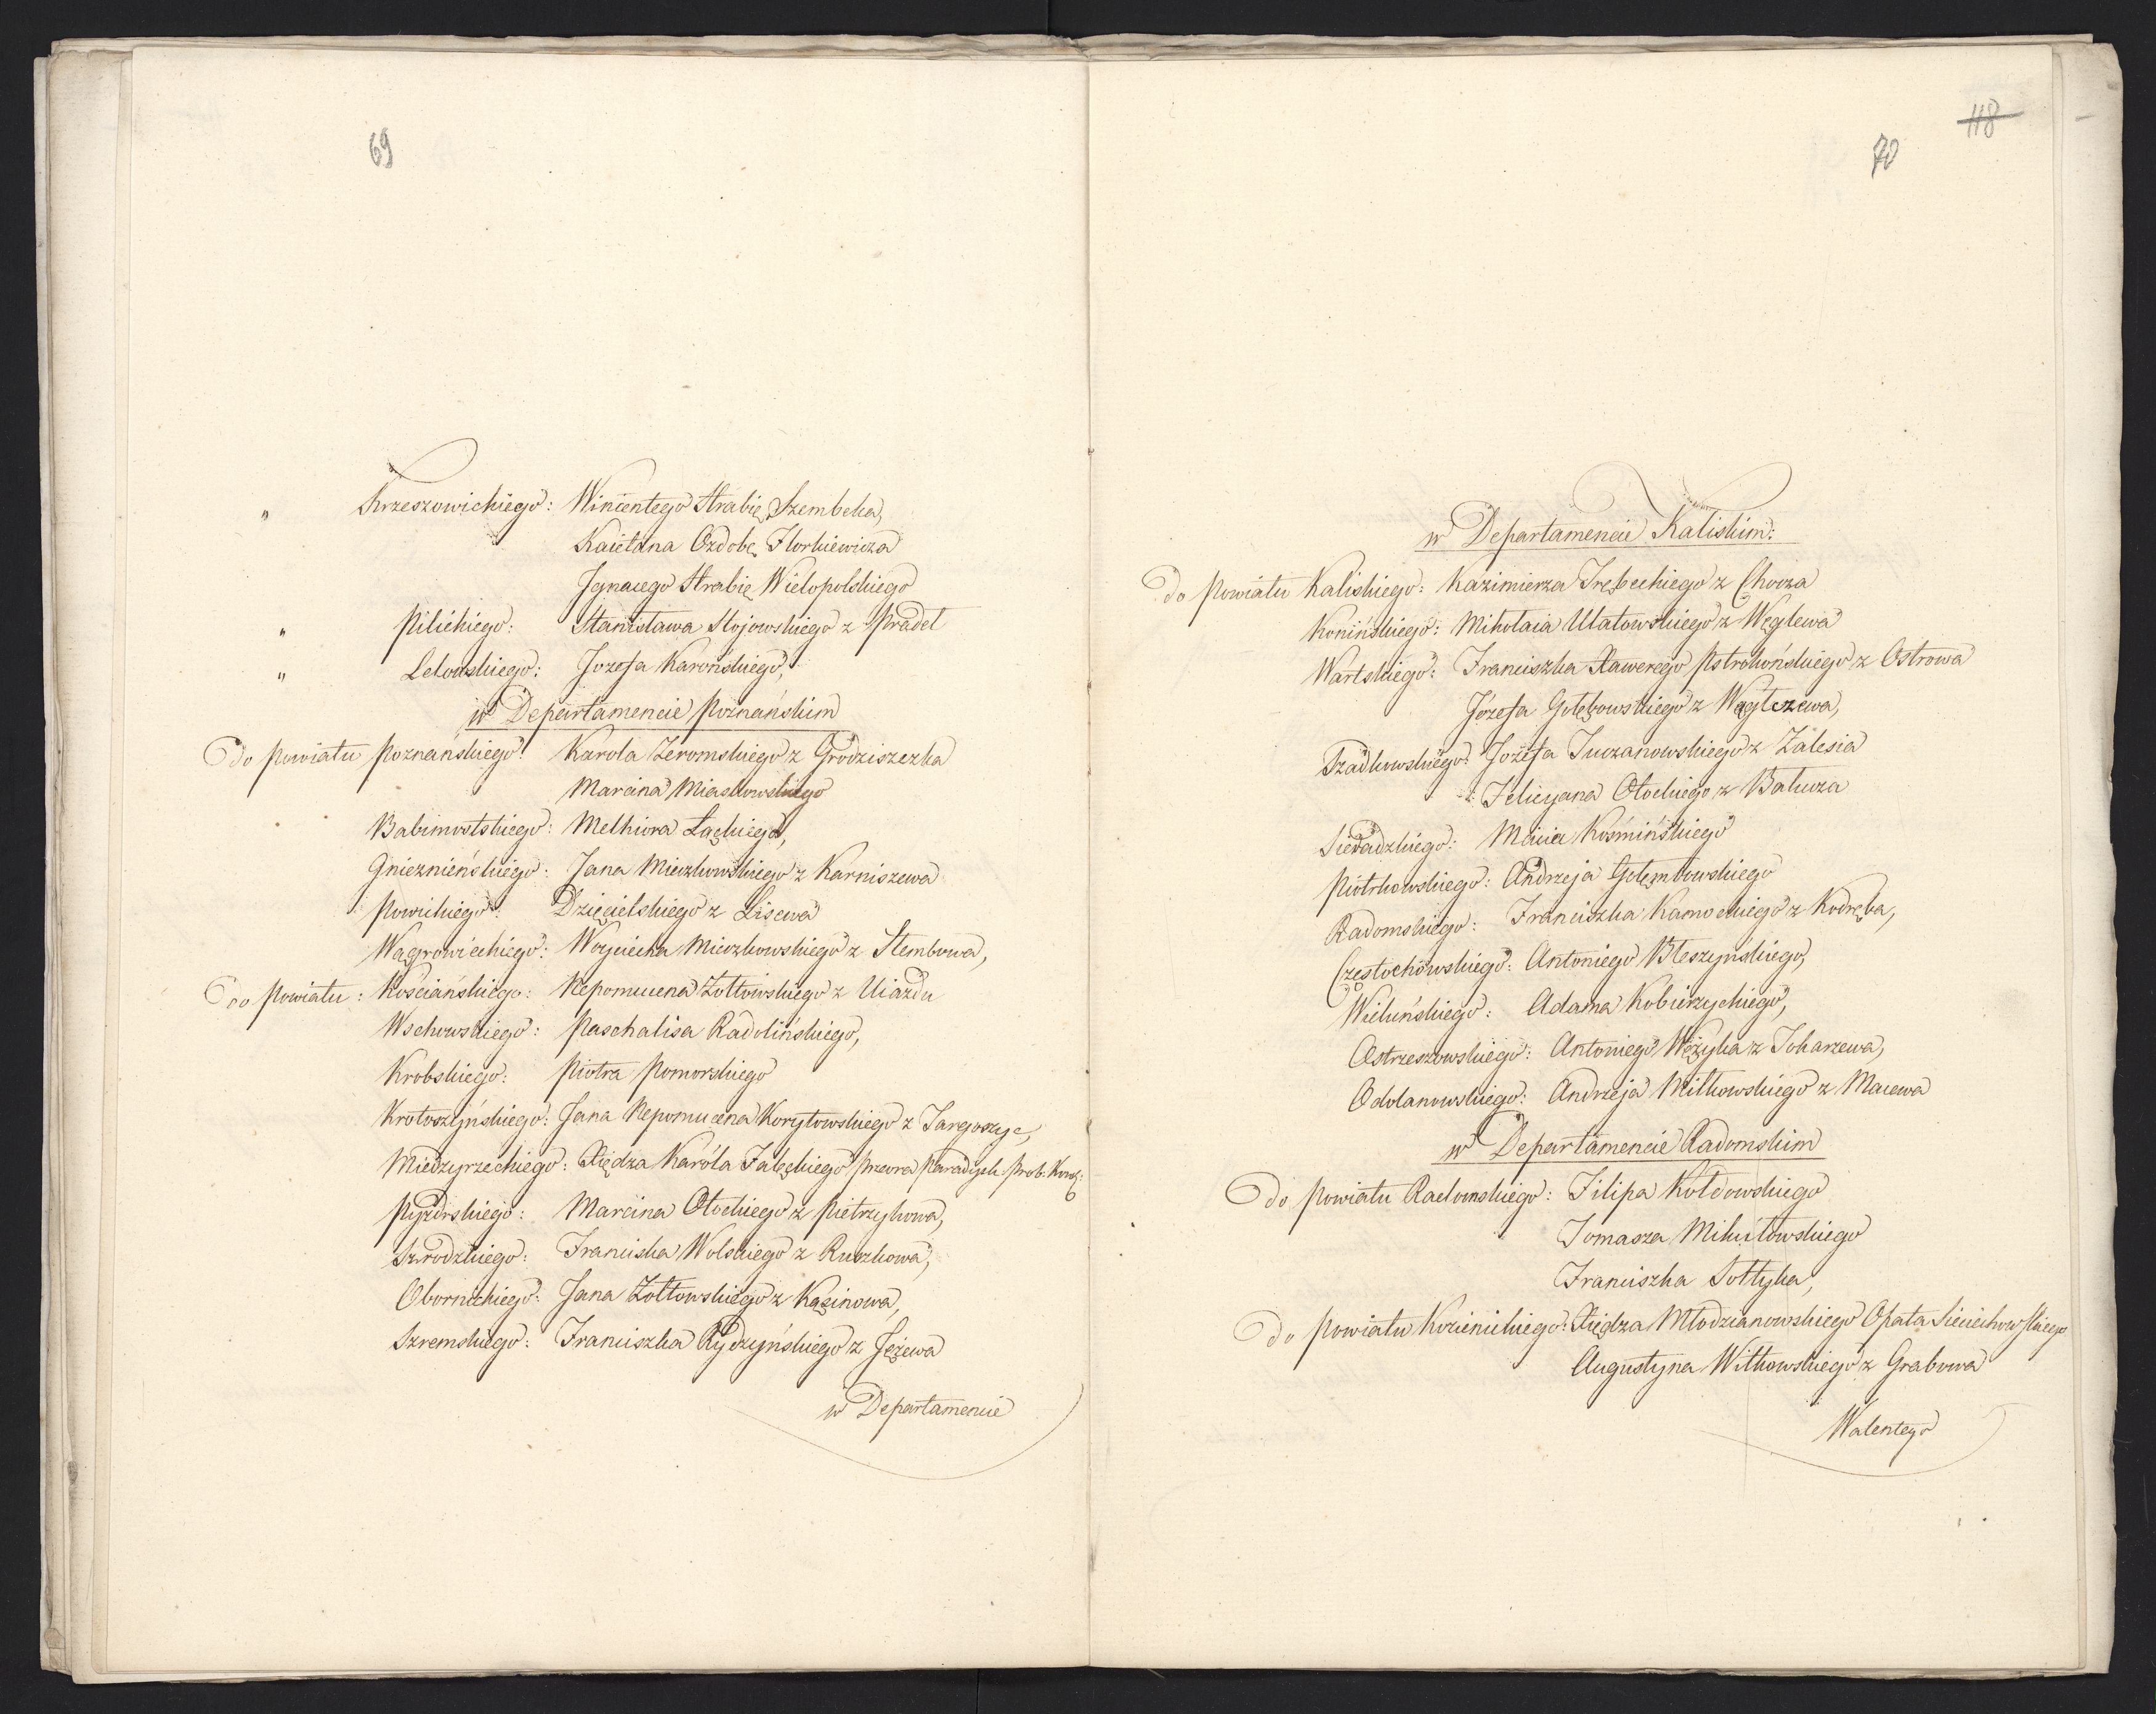 69
" Krzeszowickiego: Wincentego Hrabię Szembeka,
Kaietana Ozdobę Florkiewicza
Jgnacego Hrabię Wielopolskiego
" Pilickiego: Stanisława Stojowskiego z Pradel
" Lelowskiego: Jozefa Karońskiego,
w Departamencie Poznańskim
Do Powiatu Poznanskiego: Karola Zeromskiego z Grodziszczka
Marcina Miaskowskiego
Babimostskiego: Melhiora Łąckiego,
Gnieznieńskiego: Jana Mieczkowskiego z Karniszewa
Powickiego: Dzięcielskiego z Lisewa
Wągrowieckiego: Woyciecha Mieczkowskiego z Stembowa,
Do Powiatu: Kościańskiego: Nepomucena Zołtowskiego z Uiazdu
Wschowskiego: Paschalisa Radolińskiego,
Krobskiego: Piotra Pomorskiego
Krotoszyńskiego: Jana Nepomucena Korytowskiego z Targoszyc,
Miedzyrzeckiego: Xiędza Karóla Fałęckiego Przeora Paradysk. Prob.
Pyzdrskiego: Marcina Otockiego z Pietrzykowa,
Szrodzkiego: Franciska Wolskiego z Ruszkowa,
Obornickiego: Jana Zołtowskiego z Kąsinowa,
Szremskiego: Franciszka Rydzyńskiego z Jeżewa
w Departamencie
118
70
w Departamencie Kaliskim:
Do Powiatu Kaliskiego: Kazimierza Trębeckiego z Chocza
Konińskiego: Mikołaia Ulatowskiego z Węglewa
Wartskiego: Franciszka Xawerego Pstrokońskiego z Ostrowa
Józefa Gołębowskiego z Wągłczewa,
Szadkowskiego: Jozefa Suczanowskiego z Zalesia
: Felicyana Otockiego z Bałucza
Sieradzkiego: Macieia Kośmińskiego
Piotrkowskiego: Andrzeja Gołęmbowskiego
Radomskiego: Franciszka Kamockiego z Kodręba,
Częstochowskiego: Antoniego Bleszyńskiego,
Wieluńskiego: Adama Kobierzyckiego,
Ostrzeszowskiego: Antoniego Wężyka z Tokarzewa,
Odolanowskiego: Andrzeja Miłkowskiego z Macewa
w Departamencie Radomskim
Do Powiatu Radomskiego: Filipa Kołdowskiego
Tomasza Mikułowskiego
Franciszka Sołtyka,
Do Powiatu Kozienickiego: Xiędza Młodzianowskiego Opata Sieciechowskiego
Augustyna Witkowskiego z Grabowa
Walentego